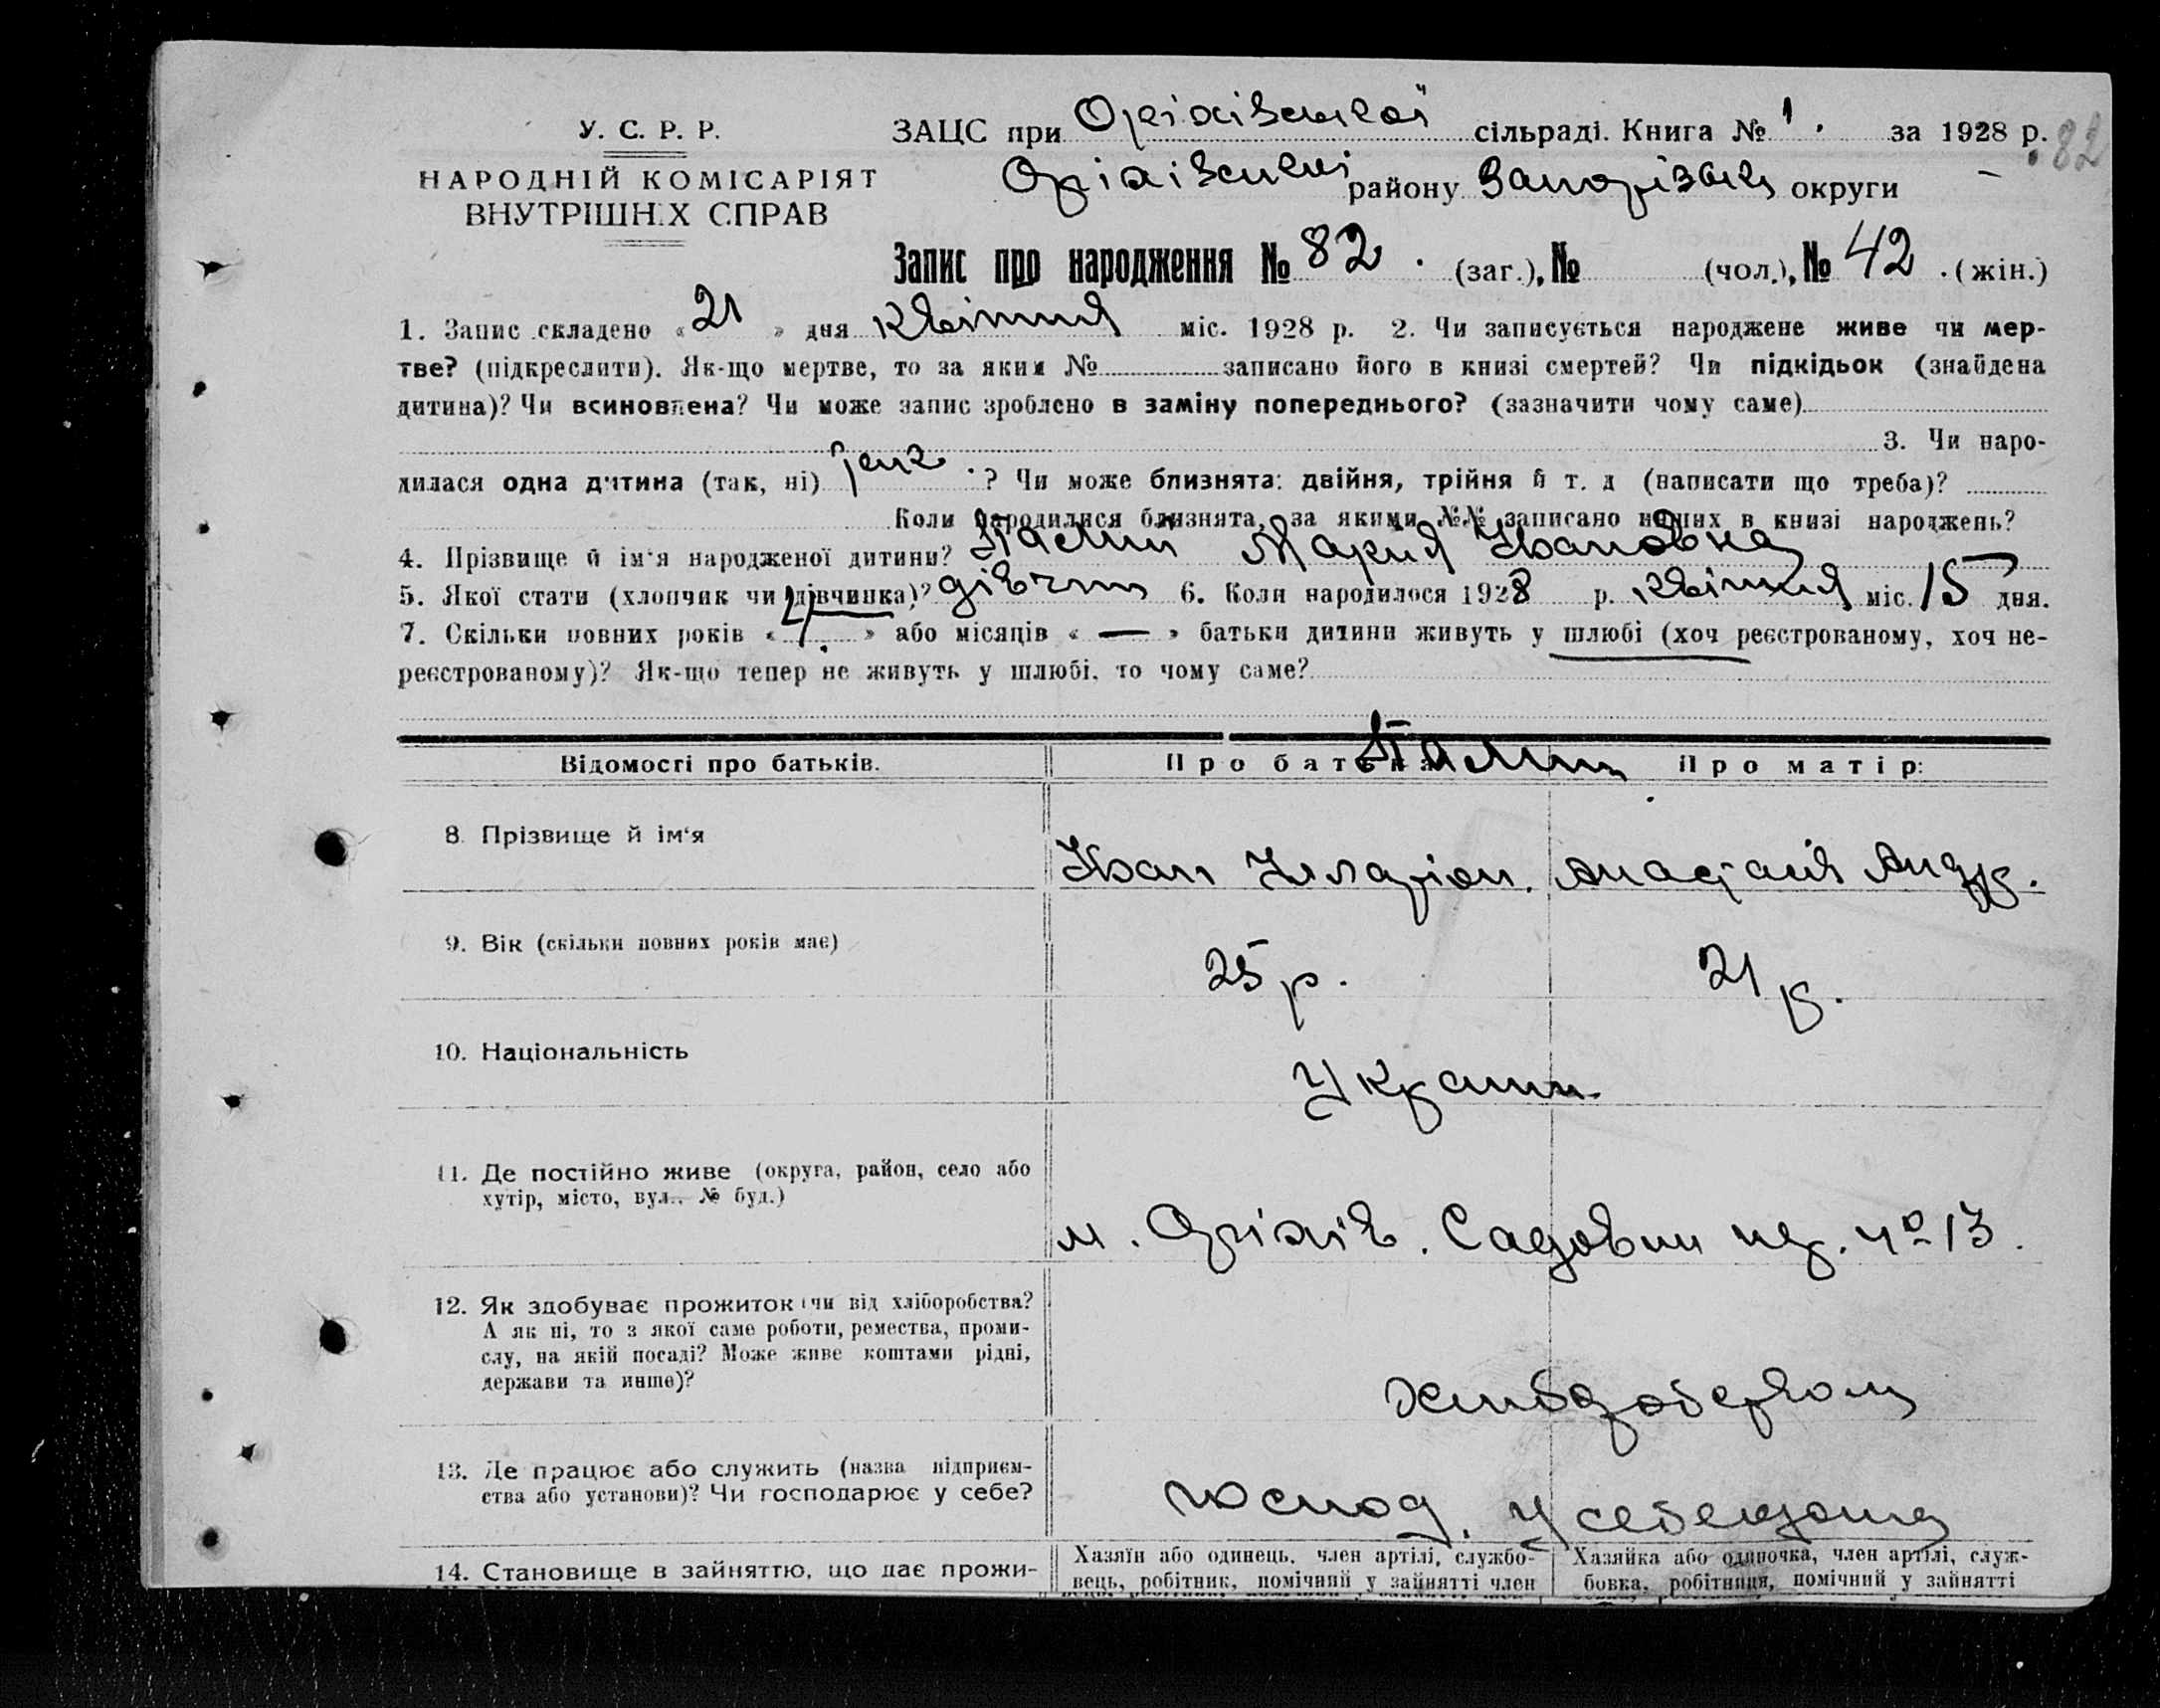 У. С. Р. Р.
НАРОДНІЙ КОМІСАРІЯТ
ВНУТРІШНІХ СПРАВ
ЗАЦС при Оріхівської сільраді. Книга № 1. за 1928 р.
82
Оріхівської району Запорізьк округи
Запис про народження № 82. (заг.), № (чол.), № 42. (жін.)
1. Запис складено « 21 » дня квітня міс. 1928 р. 2. Чи записується народжене живе чи мер-
тве? (підкреслити). Як-що мертве, то за яким № записано його в книзі смертей? Чи підкідьок (знайдена
дитина)? Чи всиновлена? Чи може запис зроблено в заміну попереднього? (зазначити чому саме)
3. Чи наро-
дилася одна дитина (так, ні) ? Чи може близнята: двійня, трійня й т. д (написати що треба)?
Коли народилися близнята, за якими №№ записано инших в книзі народжень?
4. Прізвище й ім'я народженої дитини? Марія Івановна
5. Якої стати (хлопчик чи дівчинка)? дівчин 6. Коли народилося 1928 р. квітня міс. 15 дня.
7. Скільки повних років « » або місяців « — » батьки дитини живуть у шлюбі (хоч реєстрованому, хоч не-
реєстрованому)? Як-що тепер не живуть у шлюбі, то чому саме?
Відомості про батьків. Про батька Про матір:
8. Прізвище й ім'я Іван Іларіон. Анастасія Андр.
9. Вік (скільки повних років має) 25 р. 21 р.
10. Національність Україн.
11. Де постійно живе (округа, район, село або
хутір, місто, вул., № буд.)
м. Оріхів. Садовий № 13.
12. Як здобуває прожиток (чи від хліборобства?
А як ні, то з якої саме роботи, ремества, проми-
слу, на якій посаді? Може живе коштами рідні,
держави та инше)?
хліборобством
13. Де працює або служить (назва підприєм-
ства або установи)? Чи господарює у себе?
господ. у себе вдома
14. Становище в зайняттю, що дає прожи-
Хазяїн або одинець, член артілі, службо-
вець, робітник, помічний у зайнятті член
Хазяйка або одиночка, член артілі, служ-
бовка, робітниця, помічний у зайнятті